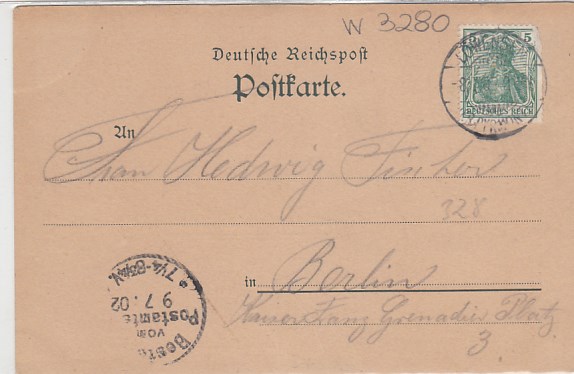 W 3280
Deutsche Reichspost
Postkarte.
5
DEUTSCHES REICH
An
Frau Hedwig Fischer
328
in Berlin
Kaiser Franz Grenadier Platz
3.
7¼-8½V.
9 7. 02
Bestellt
vom
Postamte